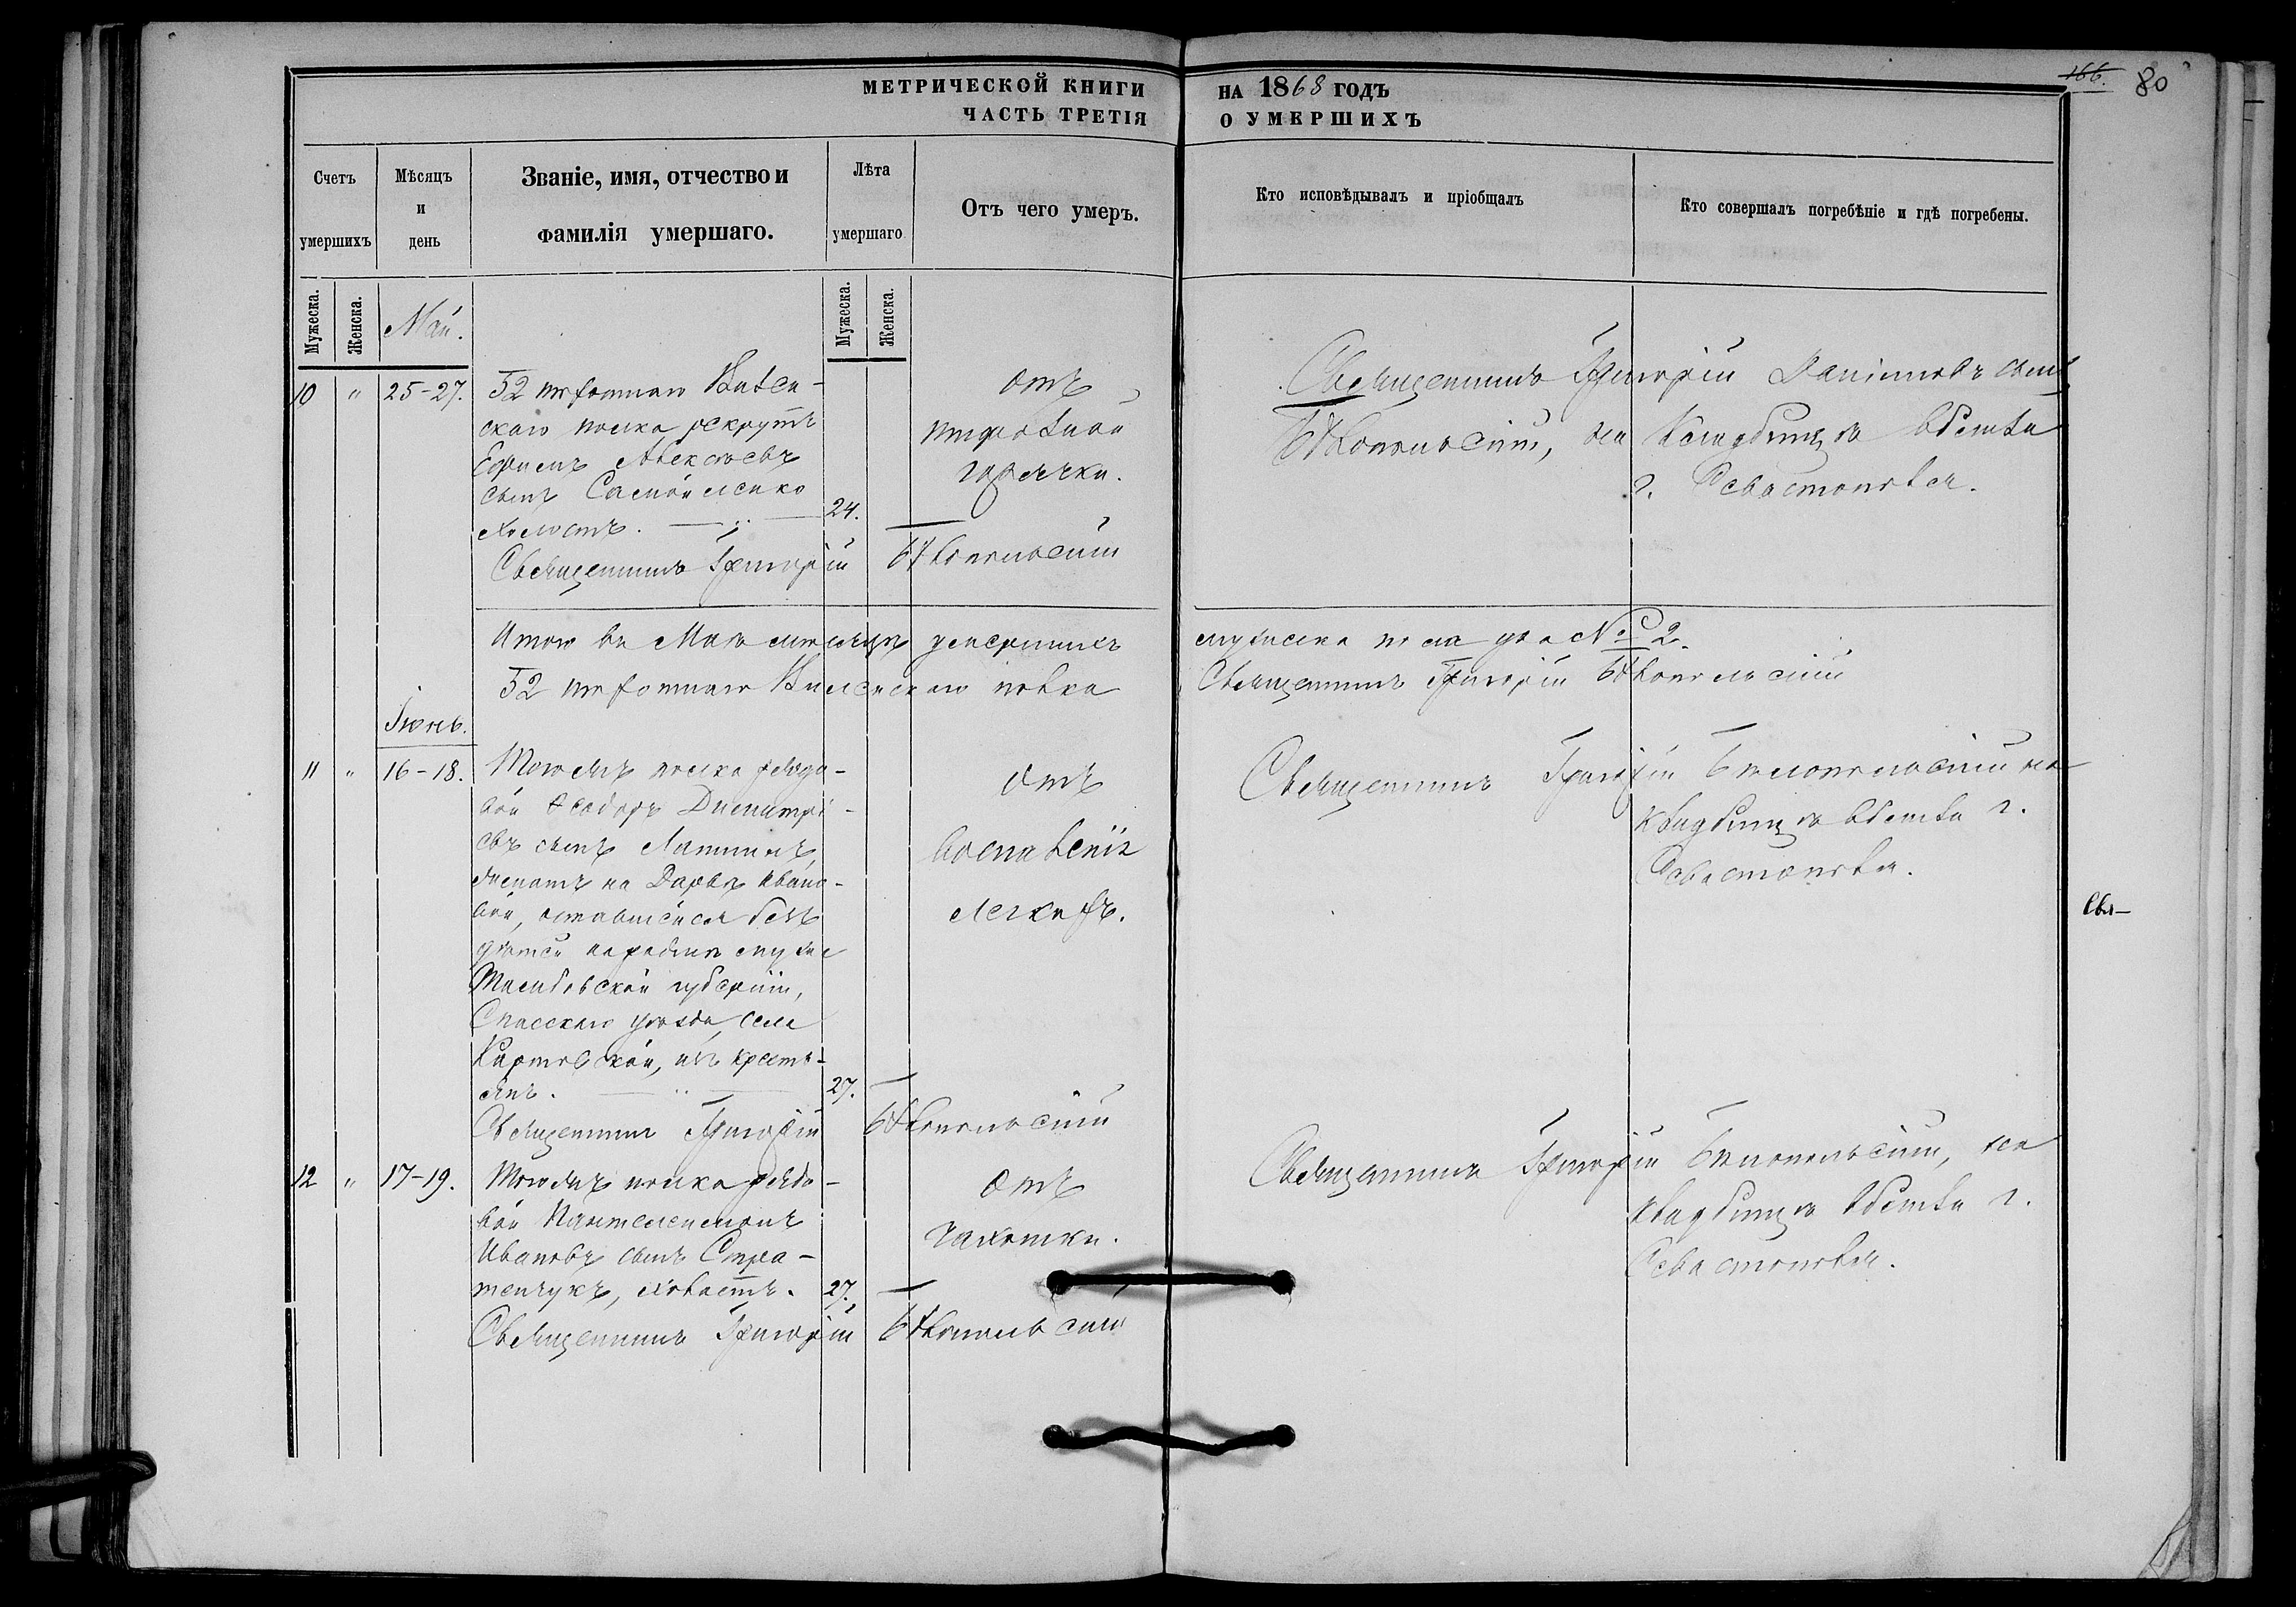 МЕТРИЧЕСКОЙ КНИГИ НА 1868 ГОДЪ
ЧАСТЬ ТРЕТІЯ О УМЕРШИХЪ
166. 80
Счетъ умершихъ
Мѣсяцъ и день
Званіе, имя, отчество и фамилія умершаго.
Лѣта умершаго
Отъ чего умеръ.
Кто исповѣдывалъ и пріобщалъ
Кто совершалъ погребѣніе и гдѣ погребены.
Мужеска.
Женска.
Мужеска.
Женска.
Май.
10 " 25-27.
52 пѣхотнаго Вилен-
скаго полка рекрутъ
Ефимъ Алексѣевъ
сынъ Самойленко
холостъ. 24.
Священникъ Григорій Бѣлопольскій
отъ
тифозной
горячки.
Священникъ Григорій Данііловъ сынъ
Бѣлопольскій, на кладбищѣ вблизи
г. Севастополя.
Итого въ Маѣ мѣсяцѣ умершихъ мужеска пола два № 2.
52 пѣхотнаго Виленскаго полка Священникъ Григорій Бѣлопольскій
Іюнь.
11 " 16-18.
Тогожъ полка рядо-
вой Ѳеодоръ Димитрі-
евъ сынъ Лашинъ,
женатъ на Дарьѣ Ивано-
вой, оставшейся безъ
дѣтей на родинѣ мужа
Тамбовской губерніи,
Спасскаго уѣзда, села
из крестъ-
янъ. 27.
Священникъ Григорій Бѣлопольскій
отъ
воспаленія
легкихъ.
Священникъ Григорій Бѣлопольскій на
кладбищѣ вблизи г.
Севастополя.
Свя-
12 " 17-19.
Тогожъ полка рядо-
вой Пантелеимонъ
Ивановъ сынъ Стра-
тенчукъ, холостъ. 27.
Священникъ Григорій Бѣлопольскій
отъ
чахотки.
Священникъ Григорій Бѣлопольскій, на
кладбищѣ вблизи г.
Севастополя.